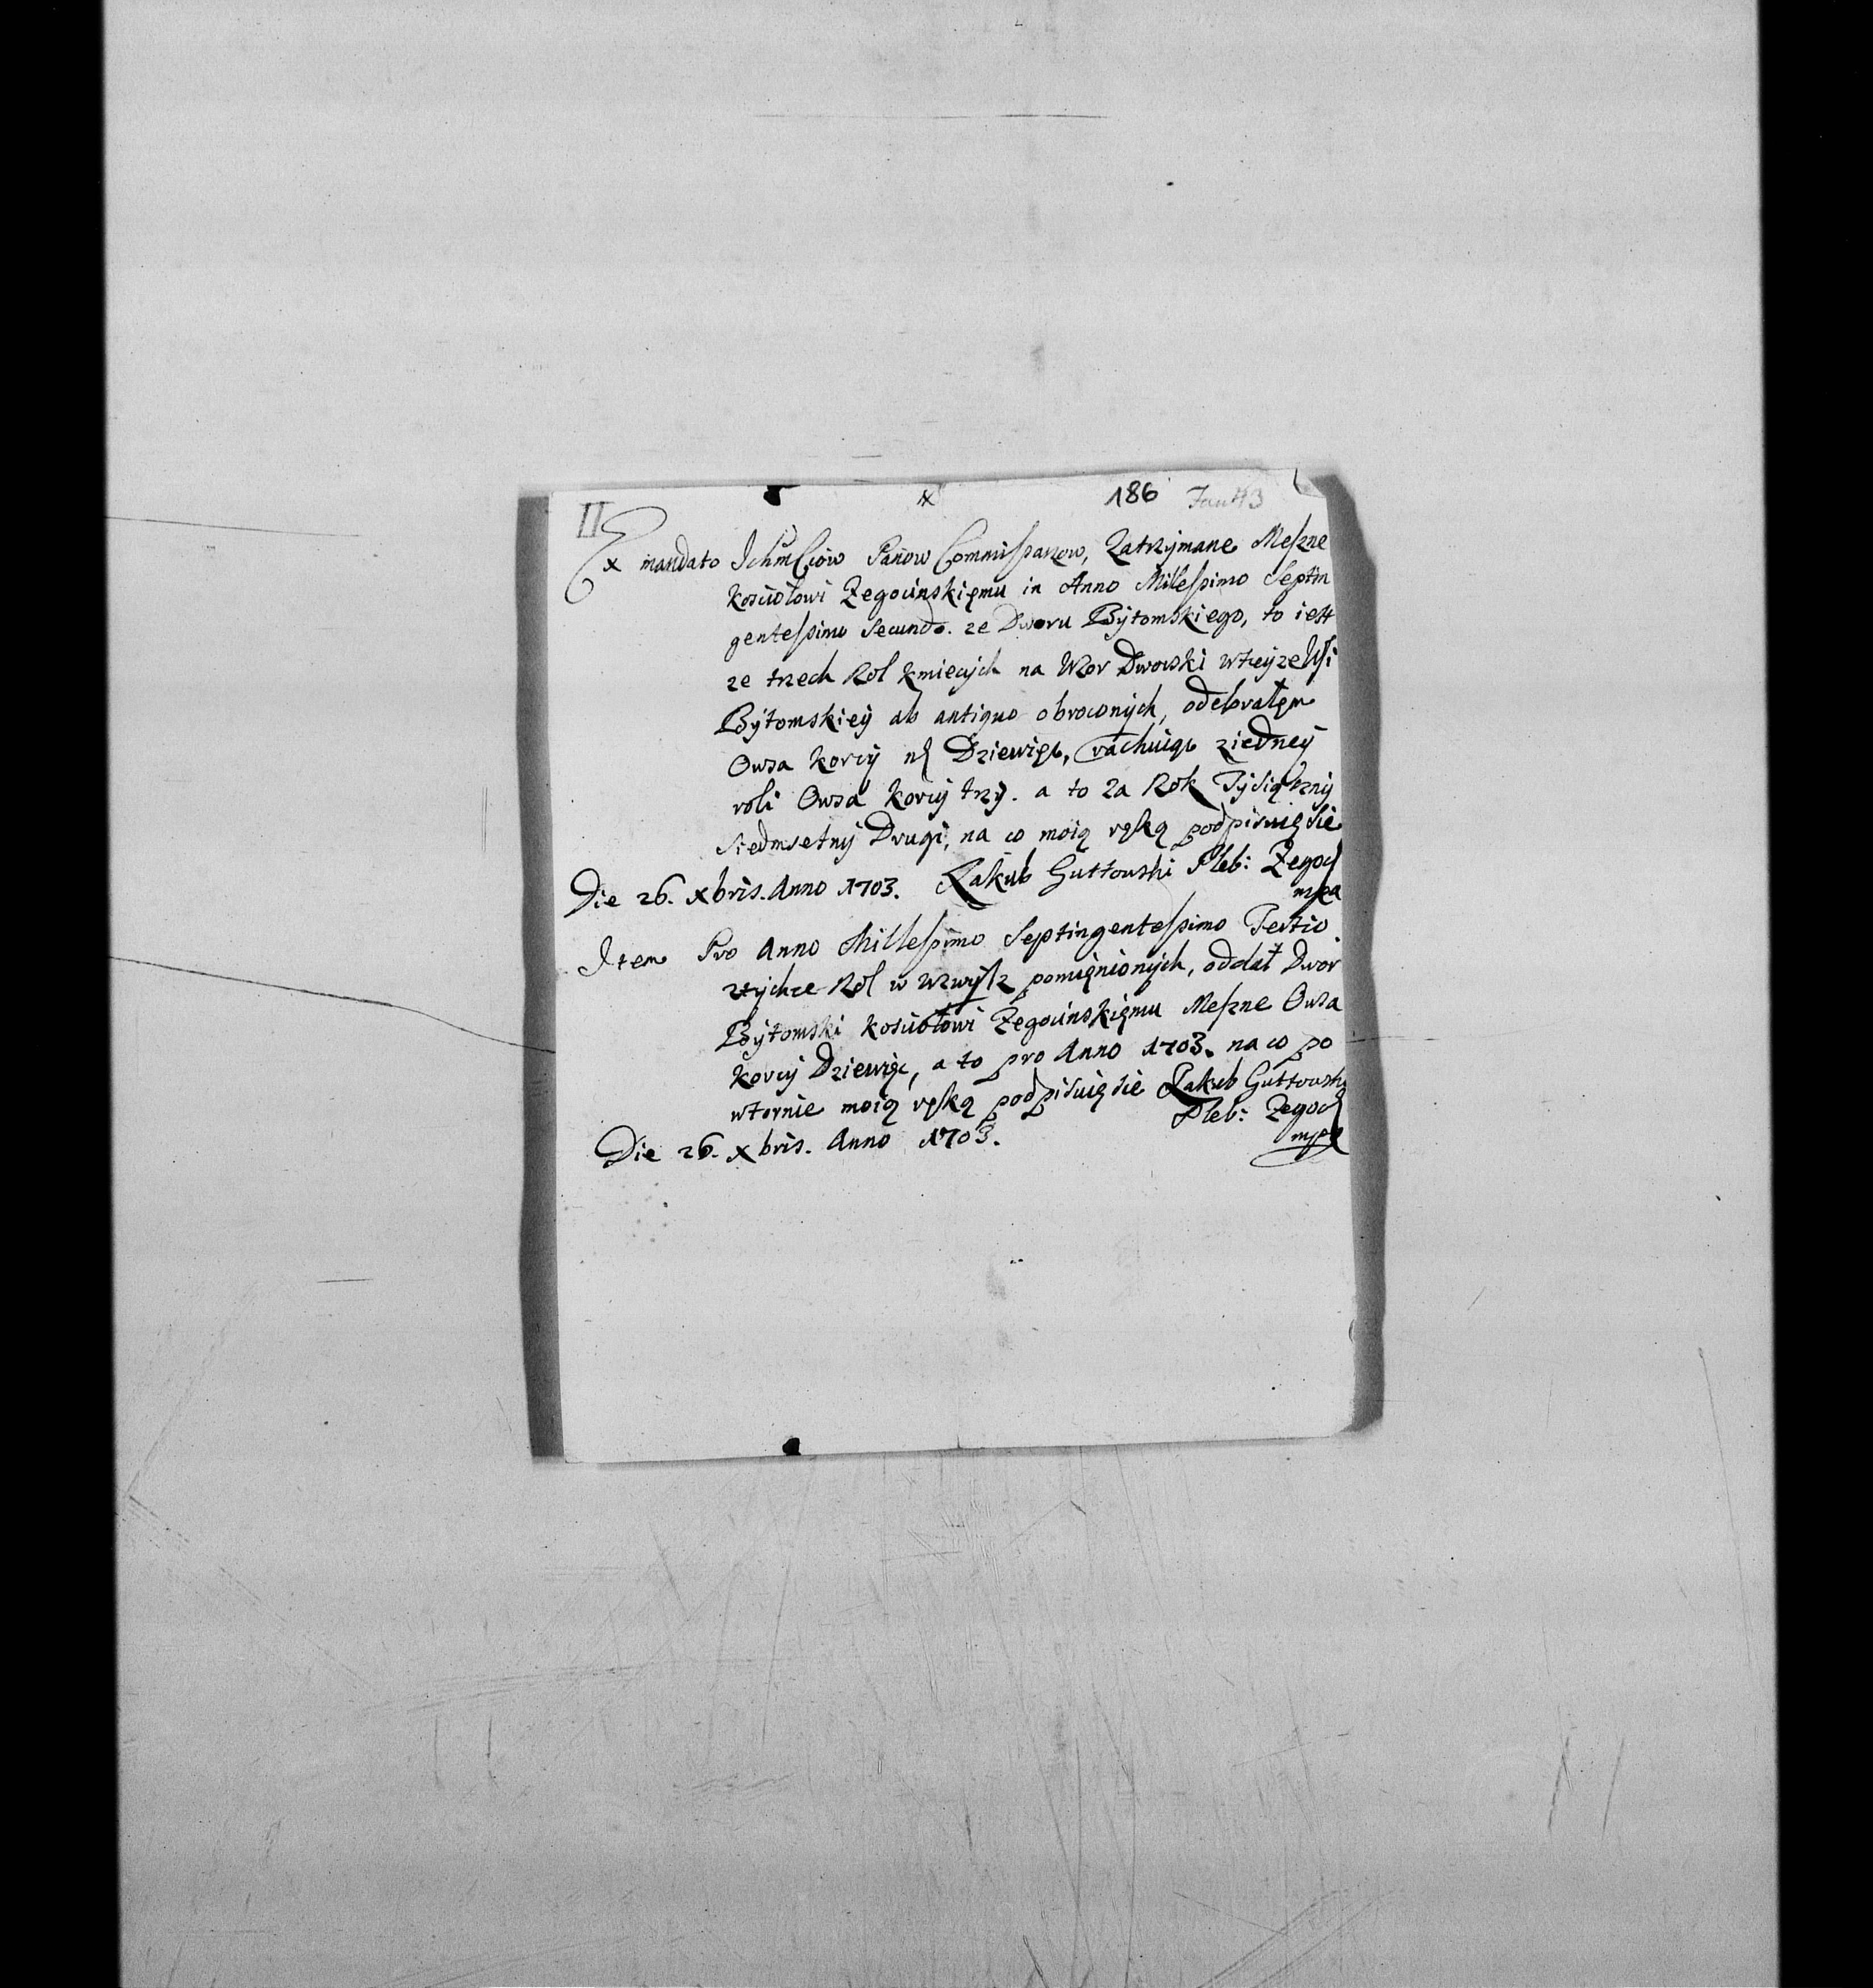 II 186
Ex mandato Ichmciow Panow Commissarzow, Zatrzymane Meszne
Kosciołowi Zegocinskięmu in Anno Millessimo Septin
gentessimo Secundo. ze Dworu Bytomskiego, to iest
ze trzech Rol kmiecych na Wzor Dworski wteyze Wsi
Bytomskiey ab antiquo obroconych, odebrałęm
Owsa korcy nº Dziewięc, rachuiąc ziedney
roli Owsa korcy trzy. a to za Rok Tysiączny
siedmsetny Drugi, na co moią ręką podpisuię sie
Die 26. Xbris. Anno 1703. Jakub Guttowski Pleb: Zegoc
mpa
Item Pro Anno Millessimo Septingentessimo Tertio
ztychze Rol w wzwysz pomięnionych, oddał Dwor
Bytomski kosciołowi Zegocinskięmu Meszne Owsa
korcy Dziewięc, a to pro Anno 1703. na co po
wtornie moią ręką podpisuię sie Jakub Guttowski
Pleb: Zegoc
Die 26. Xbris. Anno 1703. mpa